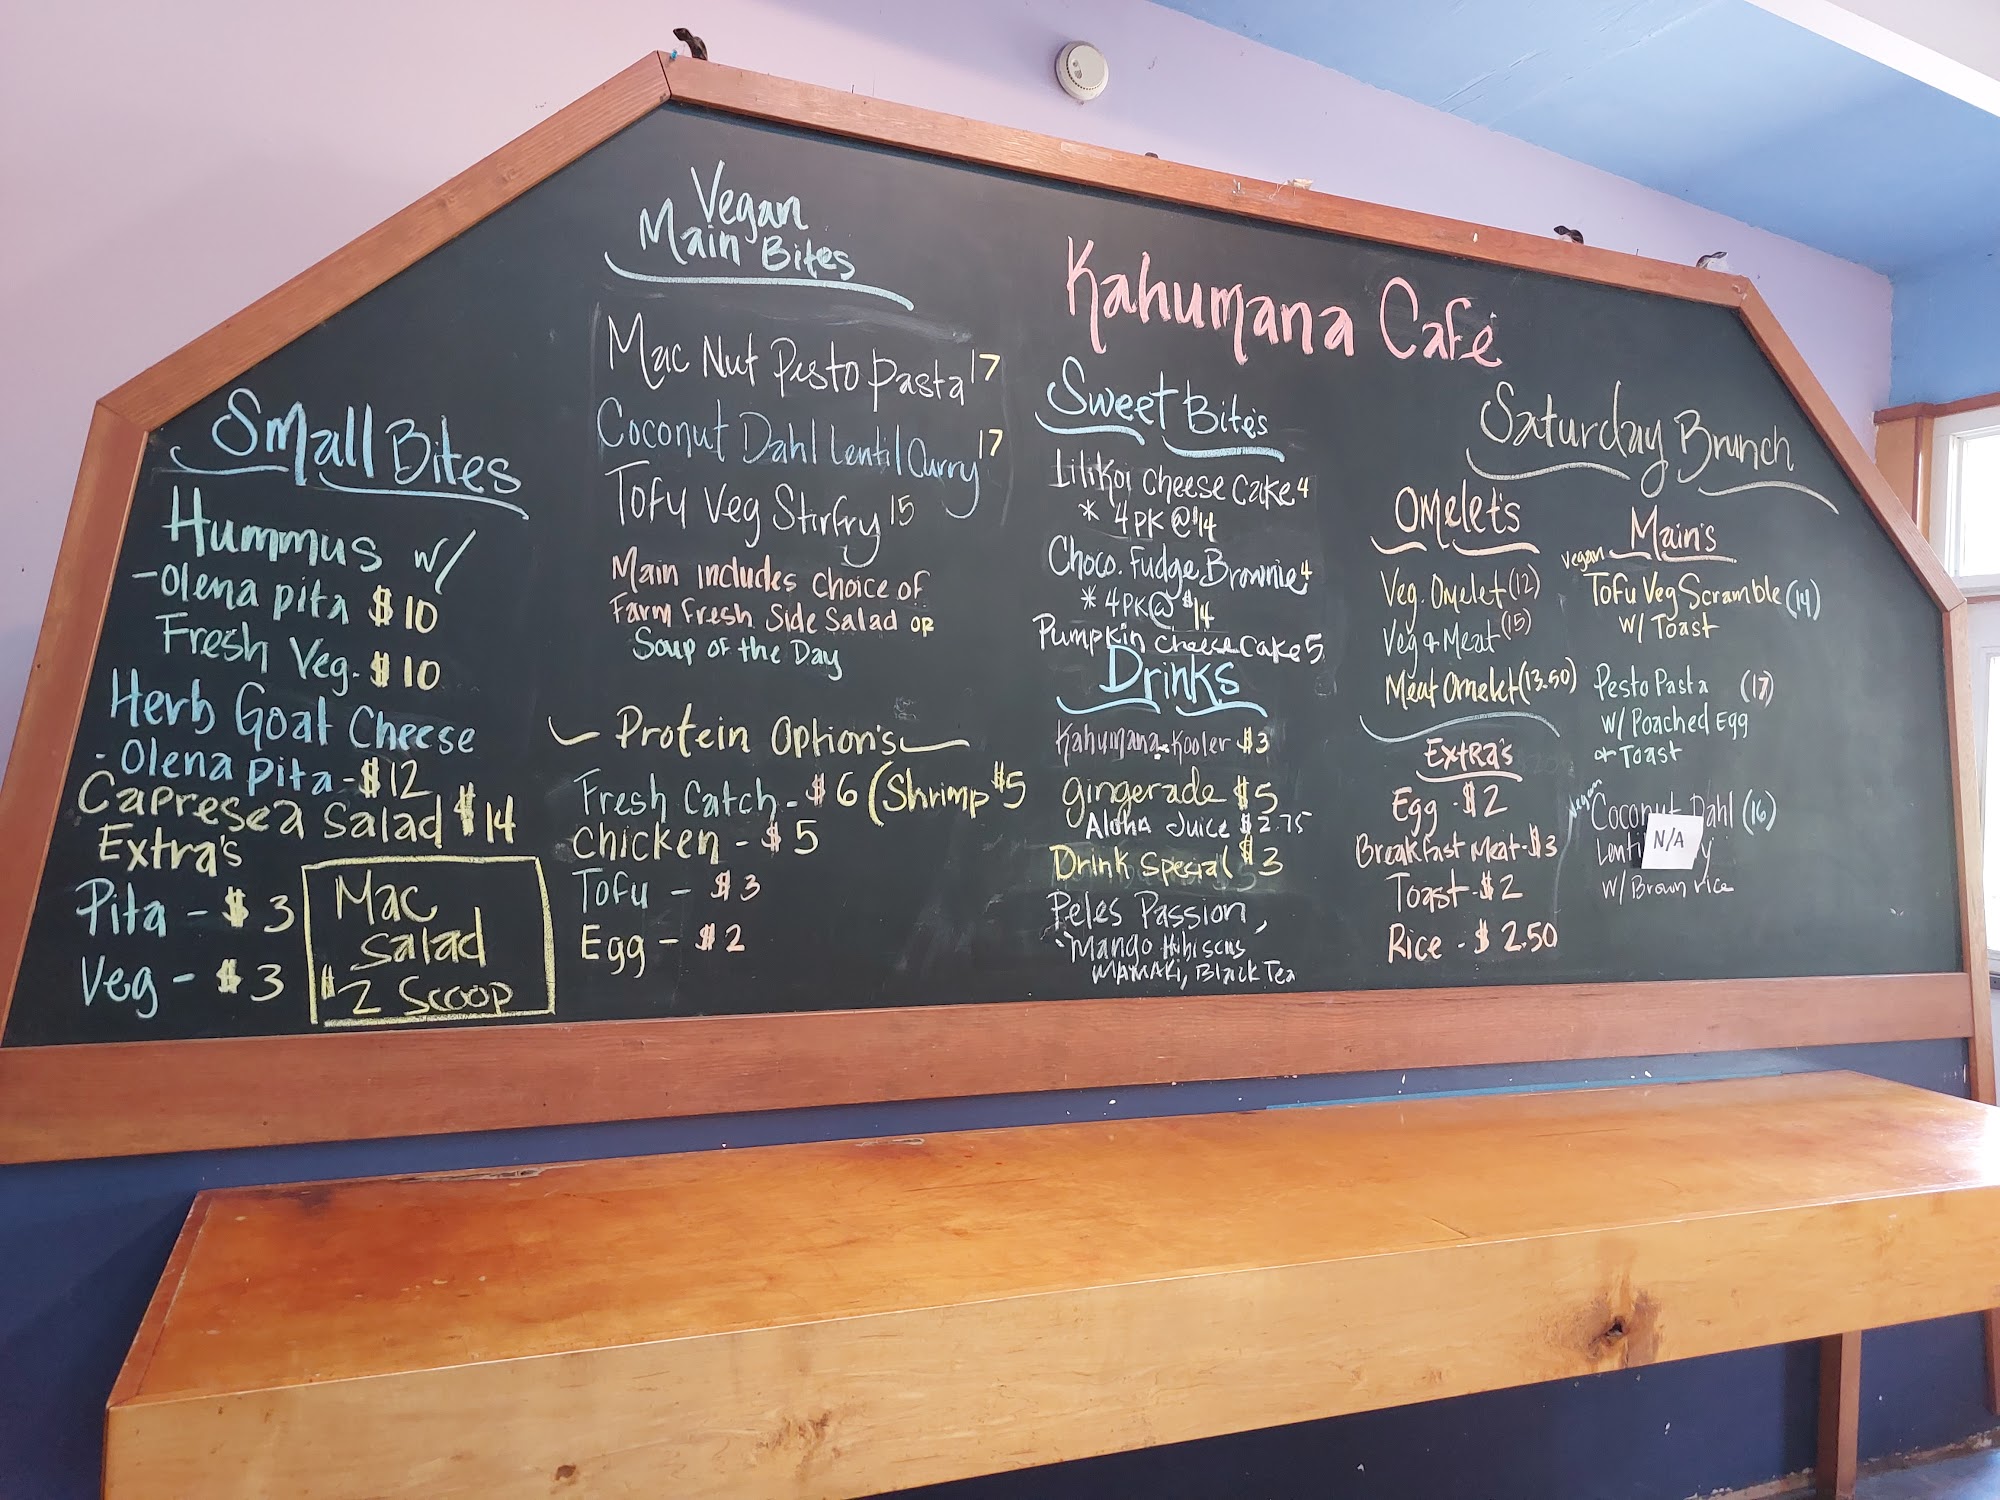 Kahumana Café
Small Bites
Hummus w/
-Olena pita $10
Fresh Veg. $10
Herb Goat Cheese
- Olena pita - $12
Capresea Salad $14
Extra's
Pita - $3
Veg - $3
Mac
Salad
$2 Scoop
Vegan
Main Bites
Mac Nut Pesto Pasta 17
Coconut Dahl Lentil Curry 17
Tofu Veg Stirfry 15
Main includes choice of
Farm Fresh Side Salad or
Soup of the Day
Protein Option's
Fresh Catch - $6 (Shrimp $5
Chicken - $5
Tofu - $3
Egg - $2
Sweet Bite's
Lilikoi Cheese Cake 4
* 4PK @ $14
Choco. Fudge Brownie 4
* 4PK @ $14
Pumpkin Cheese Cake 5
Drinks
Kahumana Kooler $3
gingerade $5
Aloha Juice $2.75
Drink Special $3
Peles Passion,
Mango Hibiscus
MAMAKi, Black Tea
Saturday Brunch
Omelet's
Veg. Omelet (12)
Veg & Meat (15)
Meat Omelet (13.50)
Extra's
Egg - $2
Breakfast Meat - $3
Toast - $2
Rice - $2.50
Main's
Vegan
Tofu Veg Scramble (14)
w/ Toast
Pesto Pasta (17)
w/ Poached Egg
& Toast
Vegan
Coconut Dahl (16)
N/A
w/ Brown rice